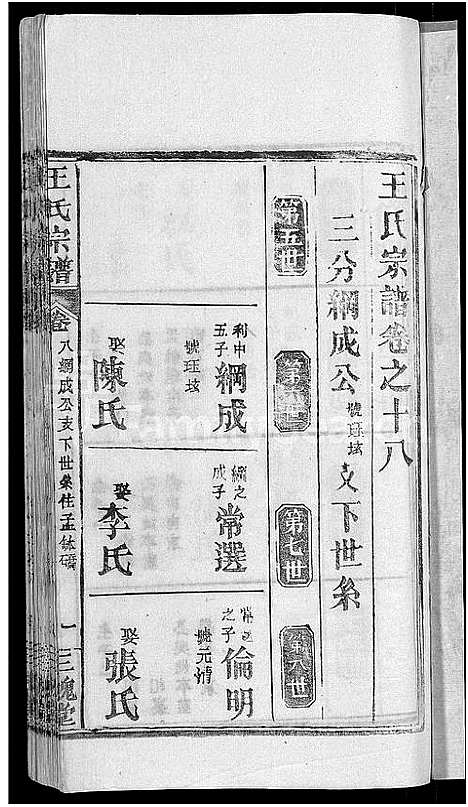 王氏宗譜卷之十八
三分綱成公號珏玹支下世系
第五世
第六世
第七世
第八世
利中五子綱成
號珏玹
娶陳氏
綱成之子常選
娶李氏
常選之子倫明
號元清
娶張氏
王氏宗譜
卷
八綱成公支下世系住孟
一
三槐堂